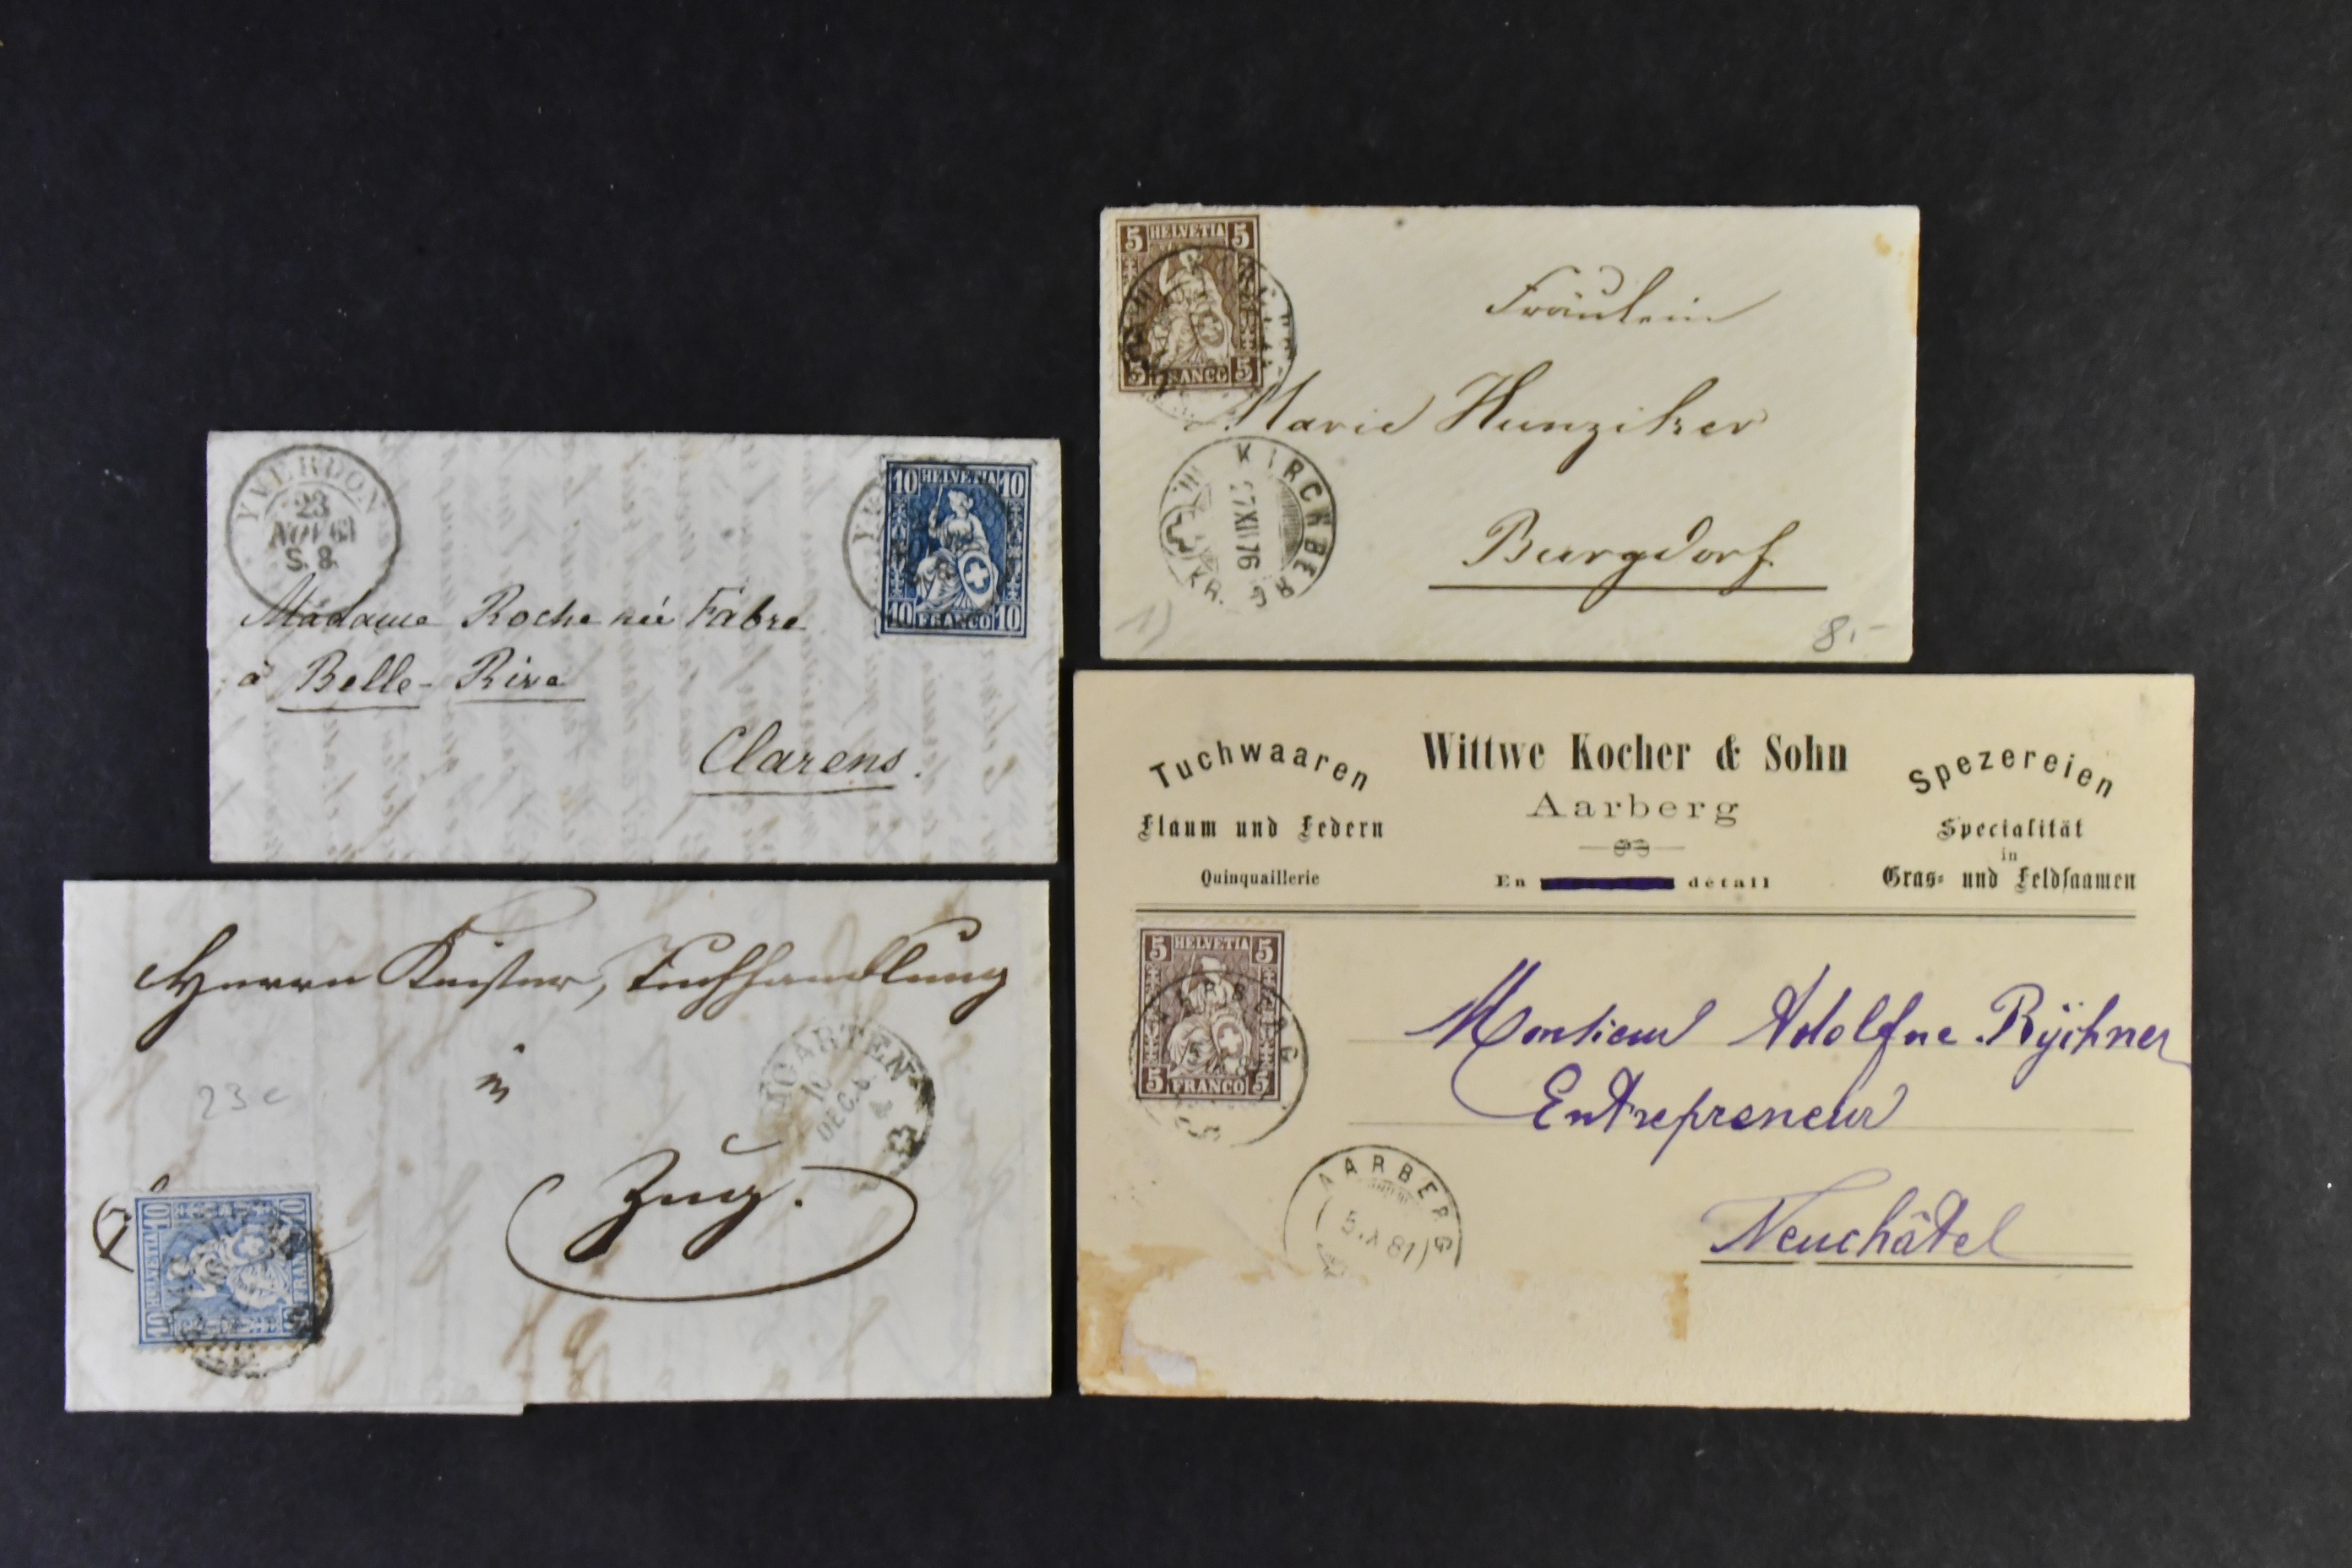 YVERDON
23
NOV 63
S. 8
10 HELVETIA 10
10 FRANCO 10
Madame Roche née Fabre
à Belle-Rive
Clarens.
5 HELVETIA 5
5 FRANCO 5
Fräulein
Marie Hunziker
Burgdorf
KIRCHBERG
27 XII 76
8.-
Herrn Keiser, Tuchhandlung
in
Zug.
23c
10
DEC. 6
10 HELVETIA 10
10 FRANCO
Tuchwaaren
Flaum und Federn
Quinquaillerie
Wittwe Kocher & Sohn
Aarberg
En détail
Spezereien
Specialität
in
Gras- und Feldsaamen
5 HELVETIA 5
5 FRANCO 5
AARBERG
Monsieur Adolfne Rÿchner
Entrepreneur
Neuchâtel
AARBERG
5. X 81